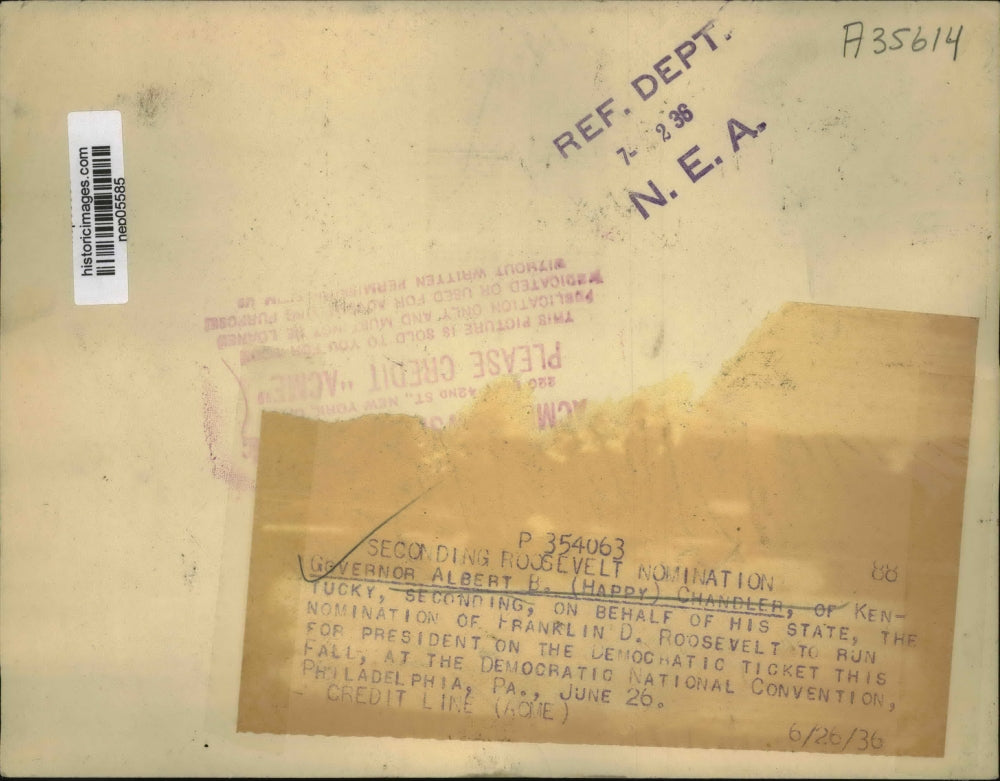 A35614
REF. DEPT.
7- 2 36
N. E. A.
historicimages.com
nep05585
ACM
220 42ND ST., NEW YORK,
PLEASE CREDIT "ACME"
THIS PICTURE IS SOLD TO YOU FOR
PUBLICATION ONLY AND MUST NOT BE LOANED
OR USED FOR PURPOSE
WITHOUT WRITTEN
P 354063
88
SECONDING ROOSEVELT NOMINATION
GOVERNOR ALBERT B. (HAPPY) CHANDLER, OF KEN-
TUCKY, SECONDING, ON BEHALF OF HIS STATE, THE
NOMINATION OF FRANKLIN D. ROOSEVELT TO RUN
FOR PRESIDENT ON THE DEMOCRATIC TICKET THIS
FALL, AT THE DEMOCRATIC NATIONAL CONVENTION,
PHILADELPHIA, PA., JUNE 26.
CREDIT LINE (ACME)
6/26/36